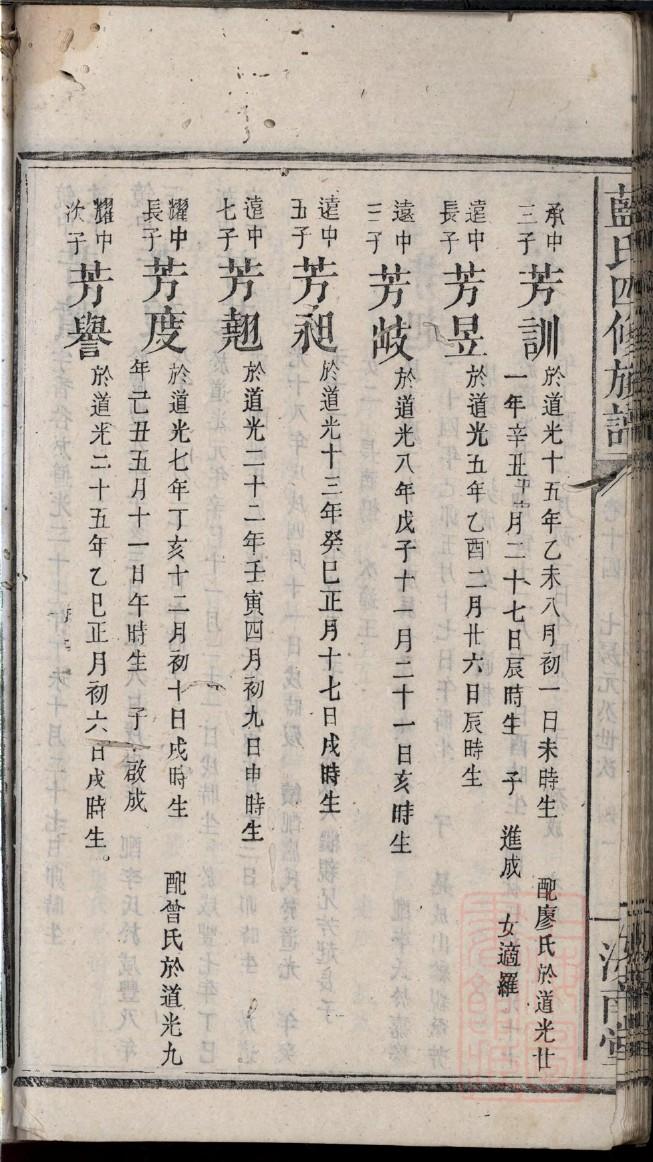 藍氏四修族譜
承中三子 芳訓 於道光十五年乙未八月初一日未時生 配廖氏於道光廿
一年辛丑十月二十七日辰時生 子 進成 女適羅
遠中長子 芳昱 於道光五年乙酉二月廿六日辰時生
遠中三子 芳岐 於道光八年戊子十二月二十一日亥時生
遠中五子 芳昶 於道光十三年癸巳正月十七日戌時生
遠中七子 芳翹 於道光二十二年壬寅四月初九日申時生
耀中長子 芳度 於道光七年丁亥十二月初十日戌時生 配曾氏於道光九
年己丑五月十一日午時生 子 啟成
耀中次子 芳譽 於道光二十五年乙巳正月初六日戌時生。